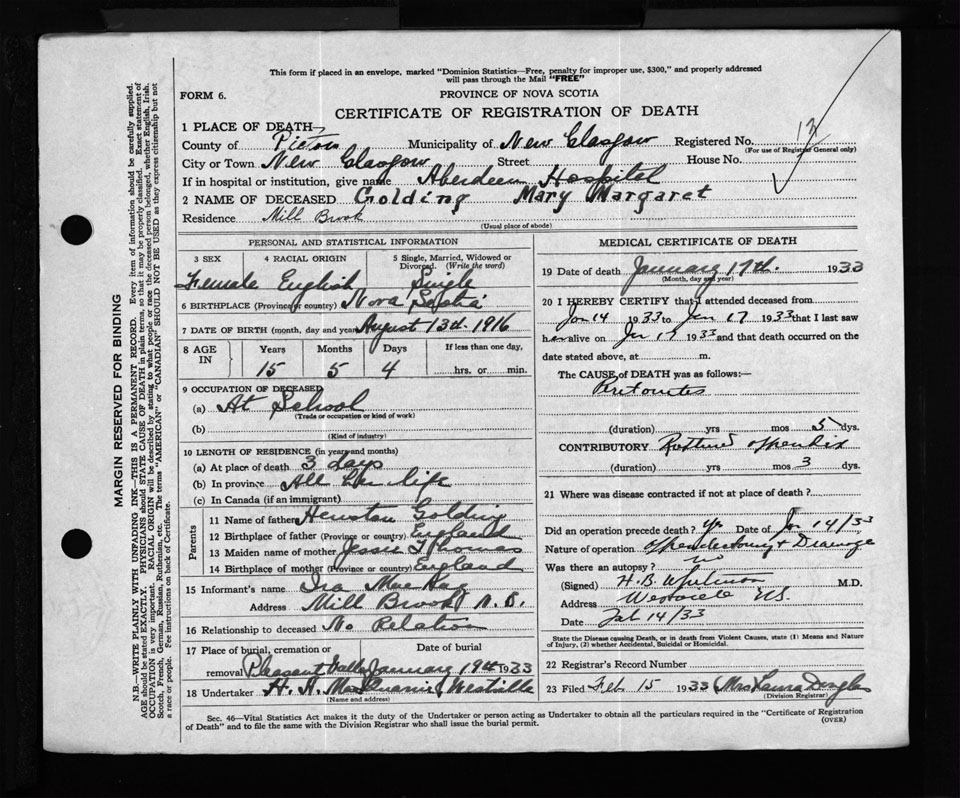 This form if placed in an envelope, marked "Dominion Statistics—Free, penalty for improper use, $300," and properly addressed
will pass through the Mail "FREE"
FORM 6.
PROVINCE OF NOVA SCOTIA
CERTIFICATE OF REGISTRATION OF DEATH
1 PLACE OF DEATH—
County of Pictou Municipality of New Glasgow Registered No. 12
(For use of Registrar General only)
City or Town New Glasgow Street House No.
If in hospital or institution, give name Aberdeen Hospital
2 NAME OF DECEASED Golding Mary Margaret
Residence Mill Brook
(Usual place of abode)
PERSONAL AND STATISTICAL INFORMATION
3 SEX 4 RACIAL ORIGIN 5 Single, Married, Widowed or
Divorced. (Write the word)
Female English Single
6 BIRTHPLACE (Province or country) Nova Scotia
7 DATE OF BIRTH (month, day and year) August 13th 1916
8 AGE IN Years Months Days If less than one day,
15 5 4 hrs. or min.
9 OCCUPATION OF DECEASED
(a) At School
(Trade or occupation or kind of work)
(b)
(Kind of industry)
10 LENGTH OF RESIDENCE (in years and months)
(a) At place of death 3 days
(b) In province All her life
(c) In Canada (if an immigrant)
Parents
11 Name of father Golding
12 Birthplace of father (Province or country) England
13 Maiden name of mother Jessie Thomas
14 Birthplace of mother (Province or country) England
15 Informant's name Ira MacKay
Address Mill Brook N.S.
16 Relationship to deceased No Relation
17 Place of burial, cremation or Date of burial
removal Pleasant Valley January 19th 1933
18 Undertaker Westville
(Name and address)
MEDICAL CERTIFICATE OF DEATH
19 Date of death January 17th. 1933
(Month, day and year)
20 I HEREBY CERTIFY that I attended deceased from
Jan 14 1933 to Jan 17 1933 that I last saw
her alive on Jan 17 1933 and that death occurred on the
date stated above, at m.
The CAUSE of DEATH was as follows:—
Peritonitis
(duration) yrs mos 5 dys.
CONTRIBUTORY Ruptured appendix
(duration) yrs. mos 3 dys.
21 Where was disease contracted if not at place of death?
Did an operation precede death? yes Date of Jan 14/33
Nature of operation Appendectomy & Drainage
Was there an autopsy? no
(Signed) H.B. M.D.
Address Westville N.S.
Date Feb 14/33
State the Disease causing Death, or in death from Violent Causes, state (1) Means and Nature
of Injury, (2) whether Accidental, Suicidal or Homicidal.
22 Registrar's Record Number
23 Filed Feb 15 1933 Mrs Laura Douglas
(Division Registrar)
Sec. 46—Vital Statistics Act makes it the duty of the Undertaker or person acting as Undertaker to obtain all the particulars required in the "Certificate of Registration
of Death" and to file the same with the Division Registrar who shall issue the burial permit.
(OVER)
MARGIN RESERVED FOR BINDING
N.B.—WRITE PLAINLY WITH UNFADING INK—THIS IS A PERMANENT RECORD. Every item of information should be carefully supplied.
AGE should be stated EXACTLY. PHYSICIANS should STATE CAUSE OF DEATH in plain terms, so that it may be properly classified. Exact statement of
OCCUPATION is very important. RACIAL ORIGIN will be described by stating to what people or race the deceased person belonged, whether English, Irish,
Scotch, French, German, Russian, Ruthenian, etc. The terms "AMERICAN" or "CANADIAN" SHOULD NOT BE USED as they express citizenship but not
a race or people. See instructions on back of Certificate.